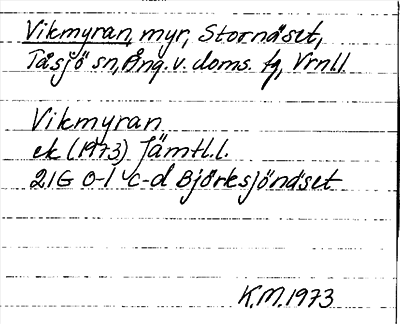 Vikmyran, myr, Stornäset,
Tåsjö sn, Ång. v. doms. fg, Vrnl.l.
Vikmyran
ek (1973) Jämtl.l.
21G 0-1 c-d Björksjönäset
K.M. 1973